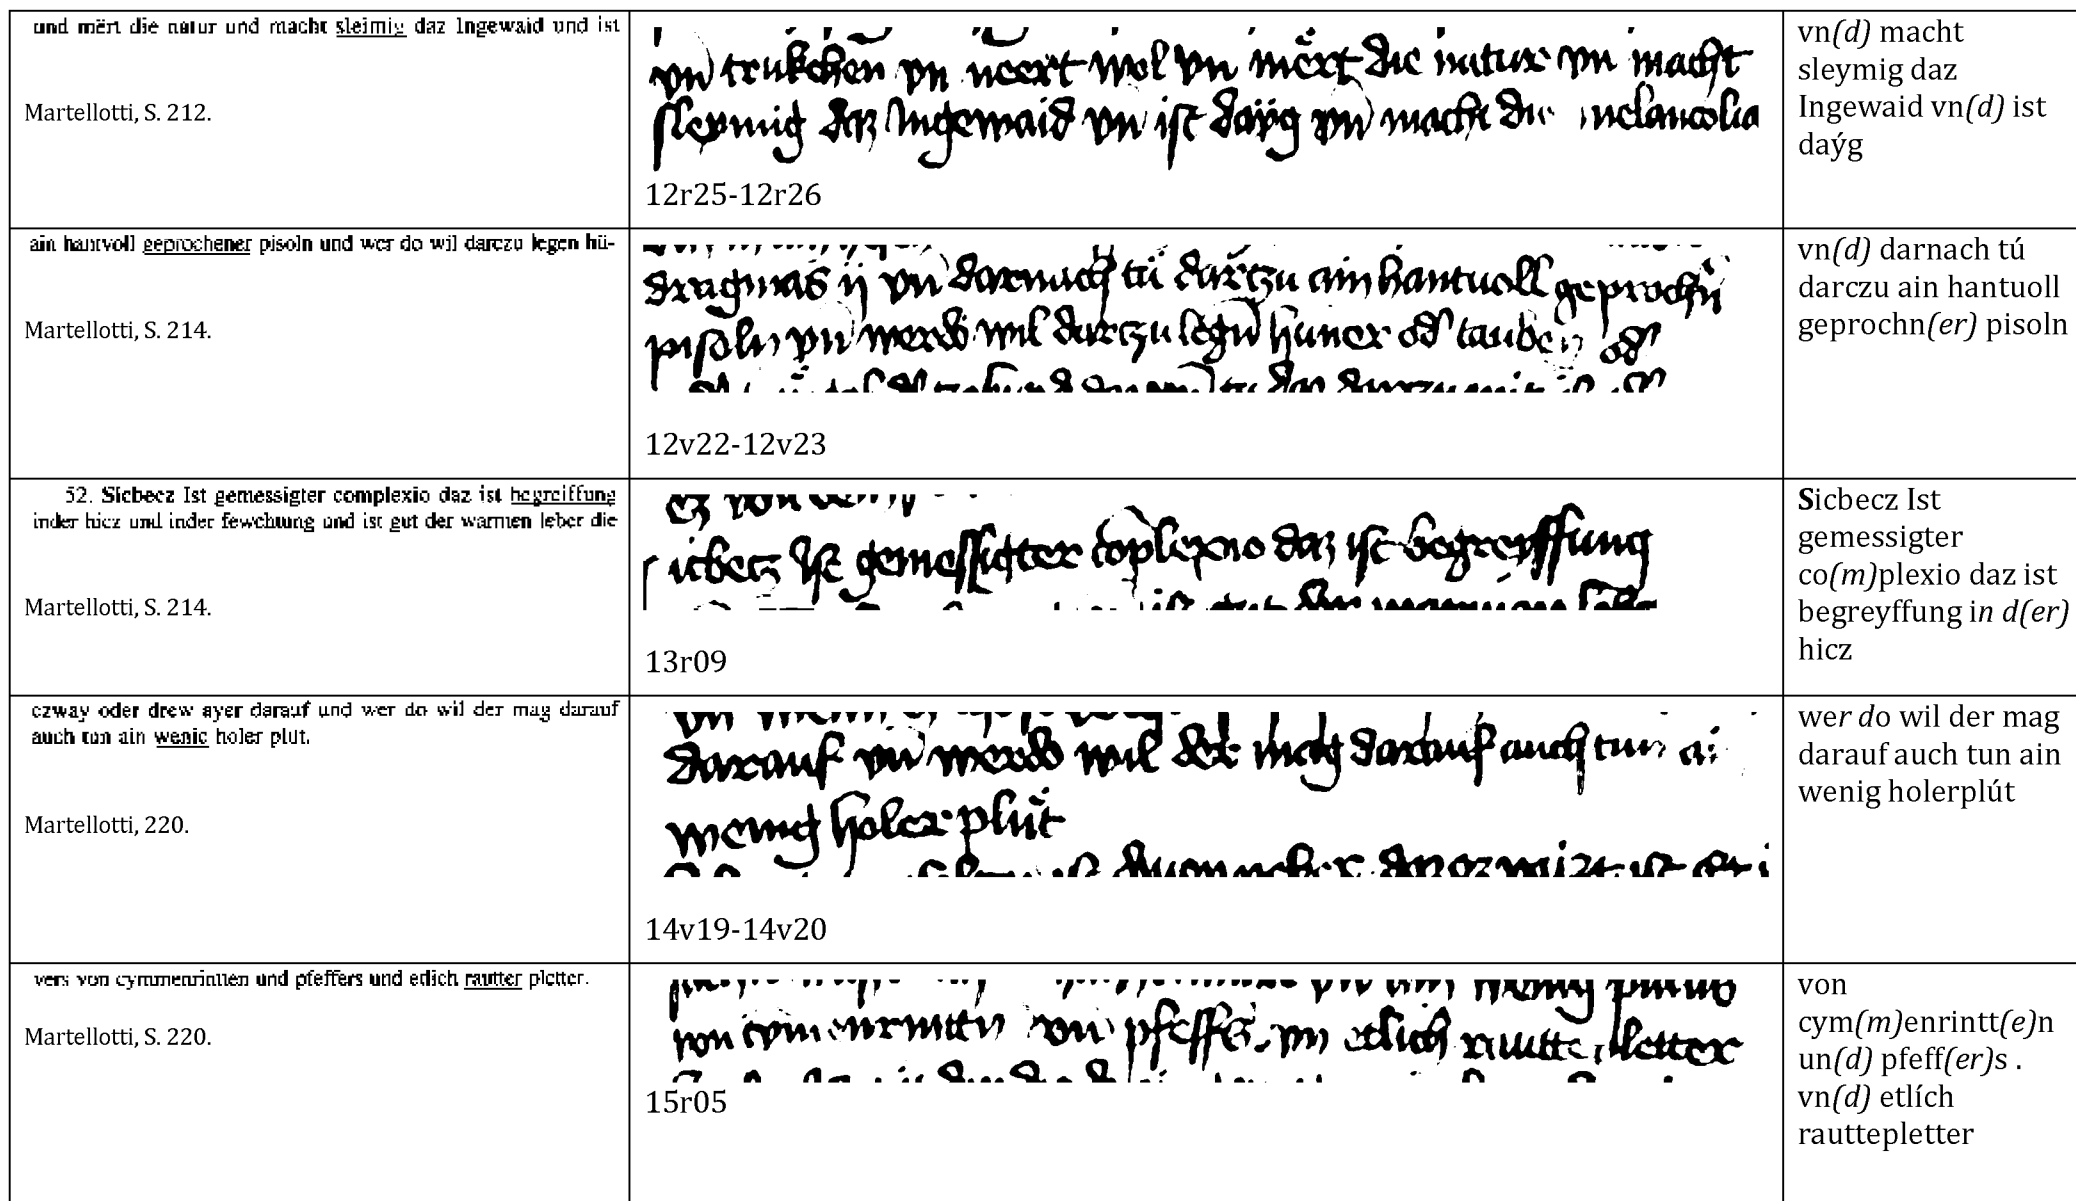 und mërt die natur und macht sleimig daz Ingewaid und ist
Martellotti, S. 212.
vn trukchen vn neert wol vn mërt die natur vn macht
sleymig daz Ingewaid vn ist daÿg vn macht die melancolia
12r25-12r26
vn(d) macht
sleymig daz
Ingewaid vn(d) ist
daýg
ain hantvoll geprochener pisoln und wer do wil darczu legen hü-
Martellotti, S. 214.
dragmas ij vn darnach tü darczu ain hantuoll geprochn
pisoln vn werdo wil darczu legn hüner od tauben od
12v22-12v23
vn(d) darnach tú
darczu ain hantuoll
geprochn(er) pisoln
52. Sicbecz Ist gemessigter complexio daz ist begreiffung
inder hicz und inder fewchtung und ist gut der warmen leber die
Martellotti, S. 214.
icbecz Ist gemessigter coplexio daz ist begreyffung
13r09
Sicbecz Ist
gemessigter
co(m)plexio daz ist
begreyffung in d(er)
hicz
czway oder drew ayer darauf und wer do wil der mag darauf
auch tun ain wenic holer plut.
Martellotti, 220.
darauf vn werdo wil der mag darauf auch tun ai
wenig holer plüt
14v19-14v20
wer do wil der mag
darauf auch tun ain
wenig holerplút
vers von cymmenrinnen und pfeffers und etlich rautter pletter.
Martellotti, S. 220.
von cymenrinttn vn pfeffs . vn etlich rautte pletter
15r05
von
cym(m)enrintt(e)n
un(d) pfeff(er)s .
vn(d) etlích
rauttepletter